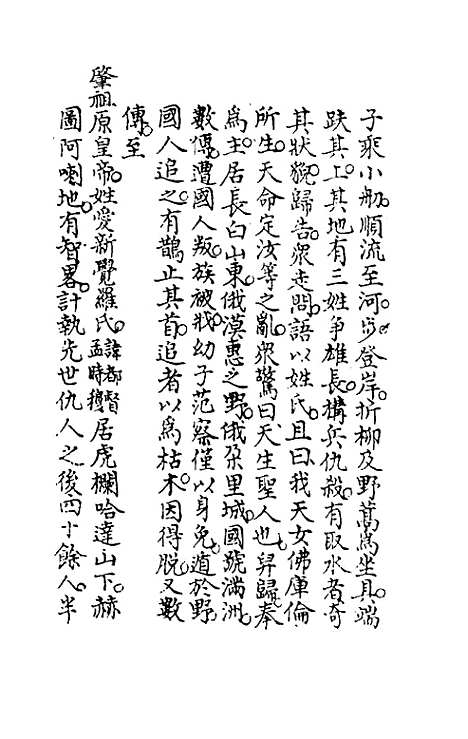 子乘小舠順流至河步登岸折柳及野蒿爲坐具端
趺其上其地有三姓爭雄長搆兵仇殺有取水者奇
其狀貌歸告衆走問語以姓氏且曰我天女佛庫倫
所生天命定汝等之亂衆驚曰天生聖人也舁歸奉
爲主居長白山東俄漠惠之野俄朶里城國號滿洲
數傳遭國人叛族被戕幼子范察僅以身免遁於野
國人追之有鵲止其首追者以爲枯木因得脫又數
傳至
肇祖原皇帝姓愛新覺羅氏諱都督孟特穆居虎欄哈達山下赫
圖阿喇地有智畧計執先世仇人之後四十餘人半